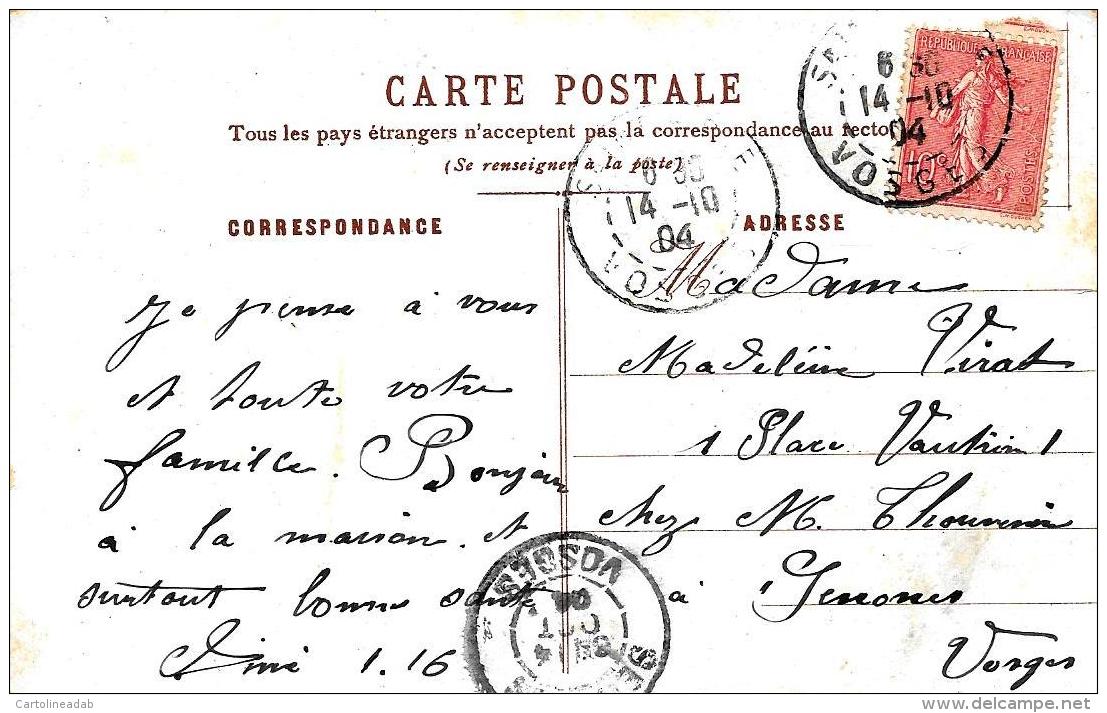 CARTE POSTALE
Tous les pays étrangers n'acceptent pas la correspondance au recto
(Se renseigner à la poste)
RÉPUBLIQUE FRANÇAISE
10c
POSTES
6 30
14 -10
04
6 30
14 -10
04
CORRESPONDANCE
ADRESSE
Je pense à vous
et toute votre
famille. Bonjour
à la maison. et
surtout bonne santé
1.16
Madame
Madeleine Virat
1 Place Vautrin 1
chez M. Thouvenin
à Senones
Vosges
VOSGES
OCT
04
Cartolineadab
delcampe.net